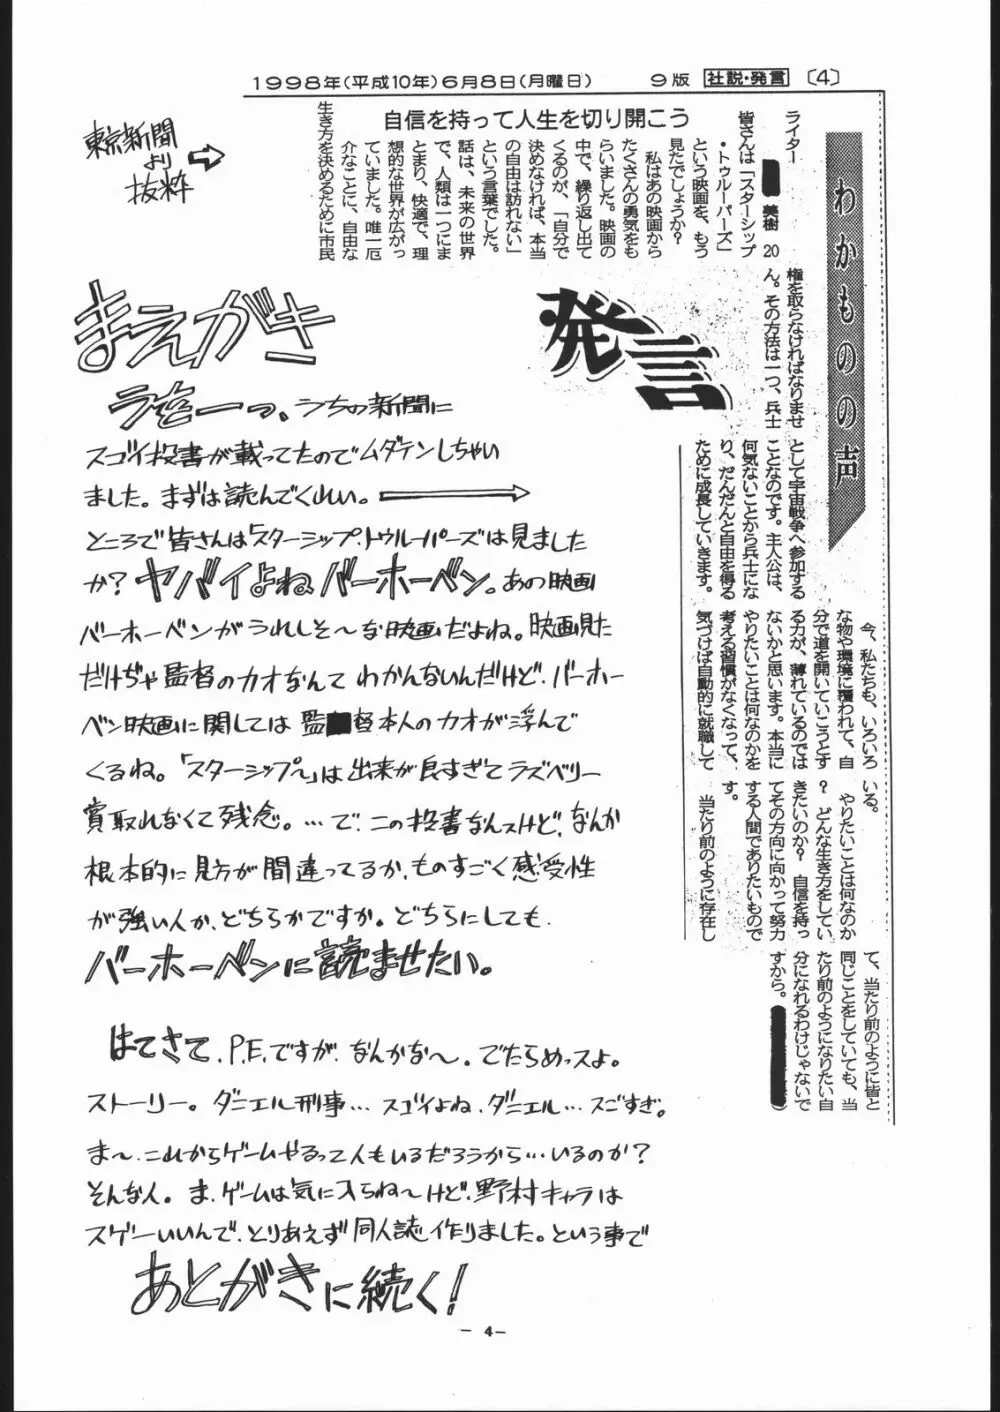 1998年(平成10年)6月8日(月曜日) 9版 社説・発言 〔4〕
東京新聞
より
抜粋
わかものの声
発言
自信を持って人生を切り開こう
ライター
美樹 20
皆さんは「スターシップ
・トゥルーパーズ」
という映画を、もう
見たでしょうか?
私はあの映画から
たくさんの勇気をも
らいました。映画の
中で、繰り返し出て
くるのが、「自分で
決めなければ、本当
の自由は訪れない」
という言葉でした。
話は、未来の世界
で、人類は一つにま
とまり、快適で、理
想的な世界が広がっ
ていました。唯一厄
介なことに、自由な
生き方を決めるために市民
権を取らなければなりませ
ん。その方法は一つ、兵士
として宇宙戦争へ参加する
ことなのです。主人公は、
何気ないことから兵士にな
り、だんだんと自由を得る
ために成長していきます。
今、私たちも、いろいろ
な物や環境に覆われて、自
分で道を開いていこうとす
る力が、薄れているのでは
ないかと思います。本当に
やりたいことは何なのかを
考える習慣がなくなって、
気づけば自動的に就職して
いる。
やりたいことは何なのか
? どんな生き方をしてい
きたいのか? 自信を持っ
てその方向に向かって努力
する人間でありたいもので
す。
当たり前のように存在し
て、当たり前のように皆と
同じことをしていても、当
たり前のようになりたい自
分になれるわけじゃないで
すから。
まえがき
うを一っ、うちの新聞に
スゴイ投書が載ってたのでムダテンしちゃい
ました。まずは読んでくれい。
ところで皆さんは「スターシップ・トゥルーパーズは見ました
か?ヤバイよねバーホーベン。あの映画
バーホーベンがうれしそ〜な映画だよね。映画見た
だけぢゃ監督のカオなんてわかんないんだけど、バーホー
ベン映画に関しては監督本人のカオが浮んで
くるね。「スターシップ〜」は出来が良すぎてラズベリー
賞取れなくて残念。…で、この投書なんスけど、なんか
根本的に見方が間違ってるか、ものすごく感受性
が強い人か、どちらかですか。どちらにしても、
バーホーベンに読ませたい。
はてさて、P.E.ですが、なんかな〜。でたらめっスよ。
ストーリー。ダニエル刑事…スゴイよね、ダニエル…スごすぎ。
ま〜、これからゲームやるって人もいるだろうから…いるのか?
そんな人。ま、ゲームは気に入らね〜けど、野村キャラは
スゲーいいんで、とりあえず同人誌作りました。という事で
あとがきに続く!
- 4 -